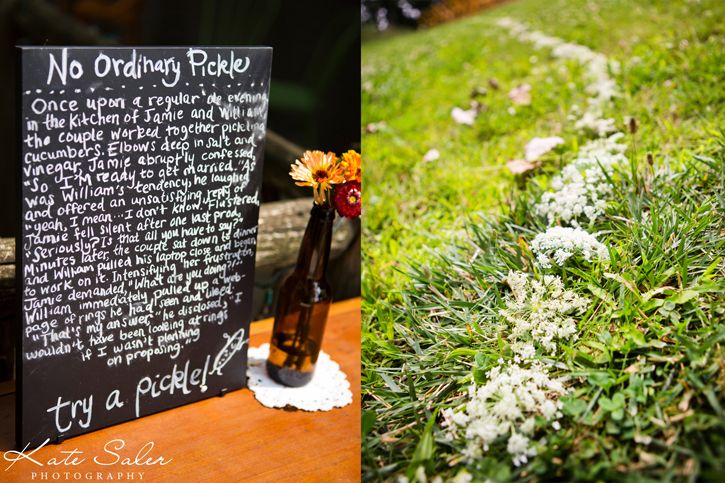 No Ordinary Pickle
Once upon a regular ole evening
in the kitchen of Jamie and William,
the couple worked together pickling
cucumbers. Elbows deep in salt and
vinegar, Jamie abruptly confessed,
"So I'm ready to get married." As
was William's tendency, he laughed
and offered an unsatisfying reply of
"yeah, I mean...I don't know." Flustered,
Jamie fell silent after one last prod,
"Seriously? Is that all you have to say?"
Minutes later, the couple sat down to dinner
and William pulled his laptop close and began
to work on it. Intensifying her frustration,
Jamie demanded, "What are you doing?!"
William immediately pulled up a web-
page of rings he had seen and liked.
"That's my answer," he disclosed, "I
wouldn't have been looking at rings
if I wasn't planning
on proposing."
try a pickle!
Kate Saler
PHOTOGRAPHY